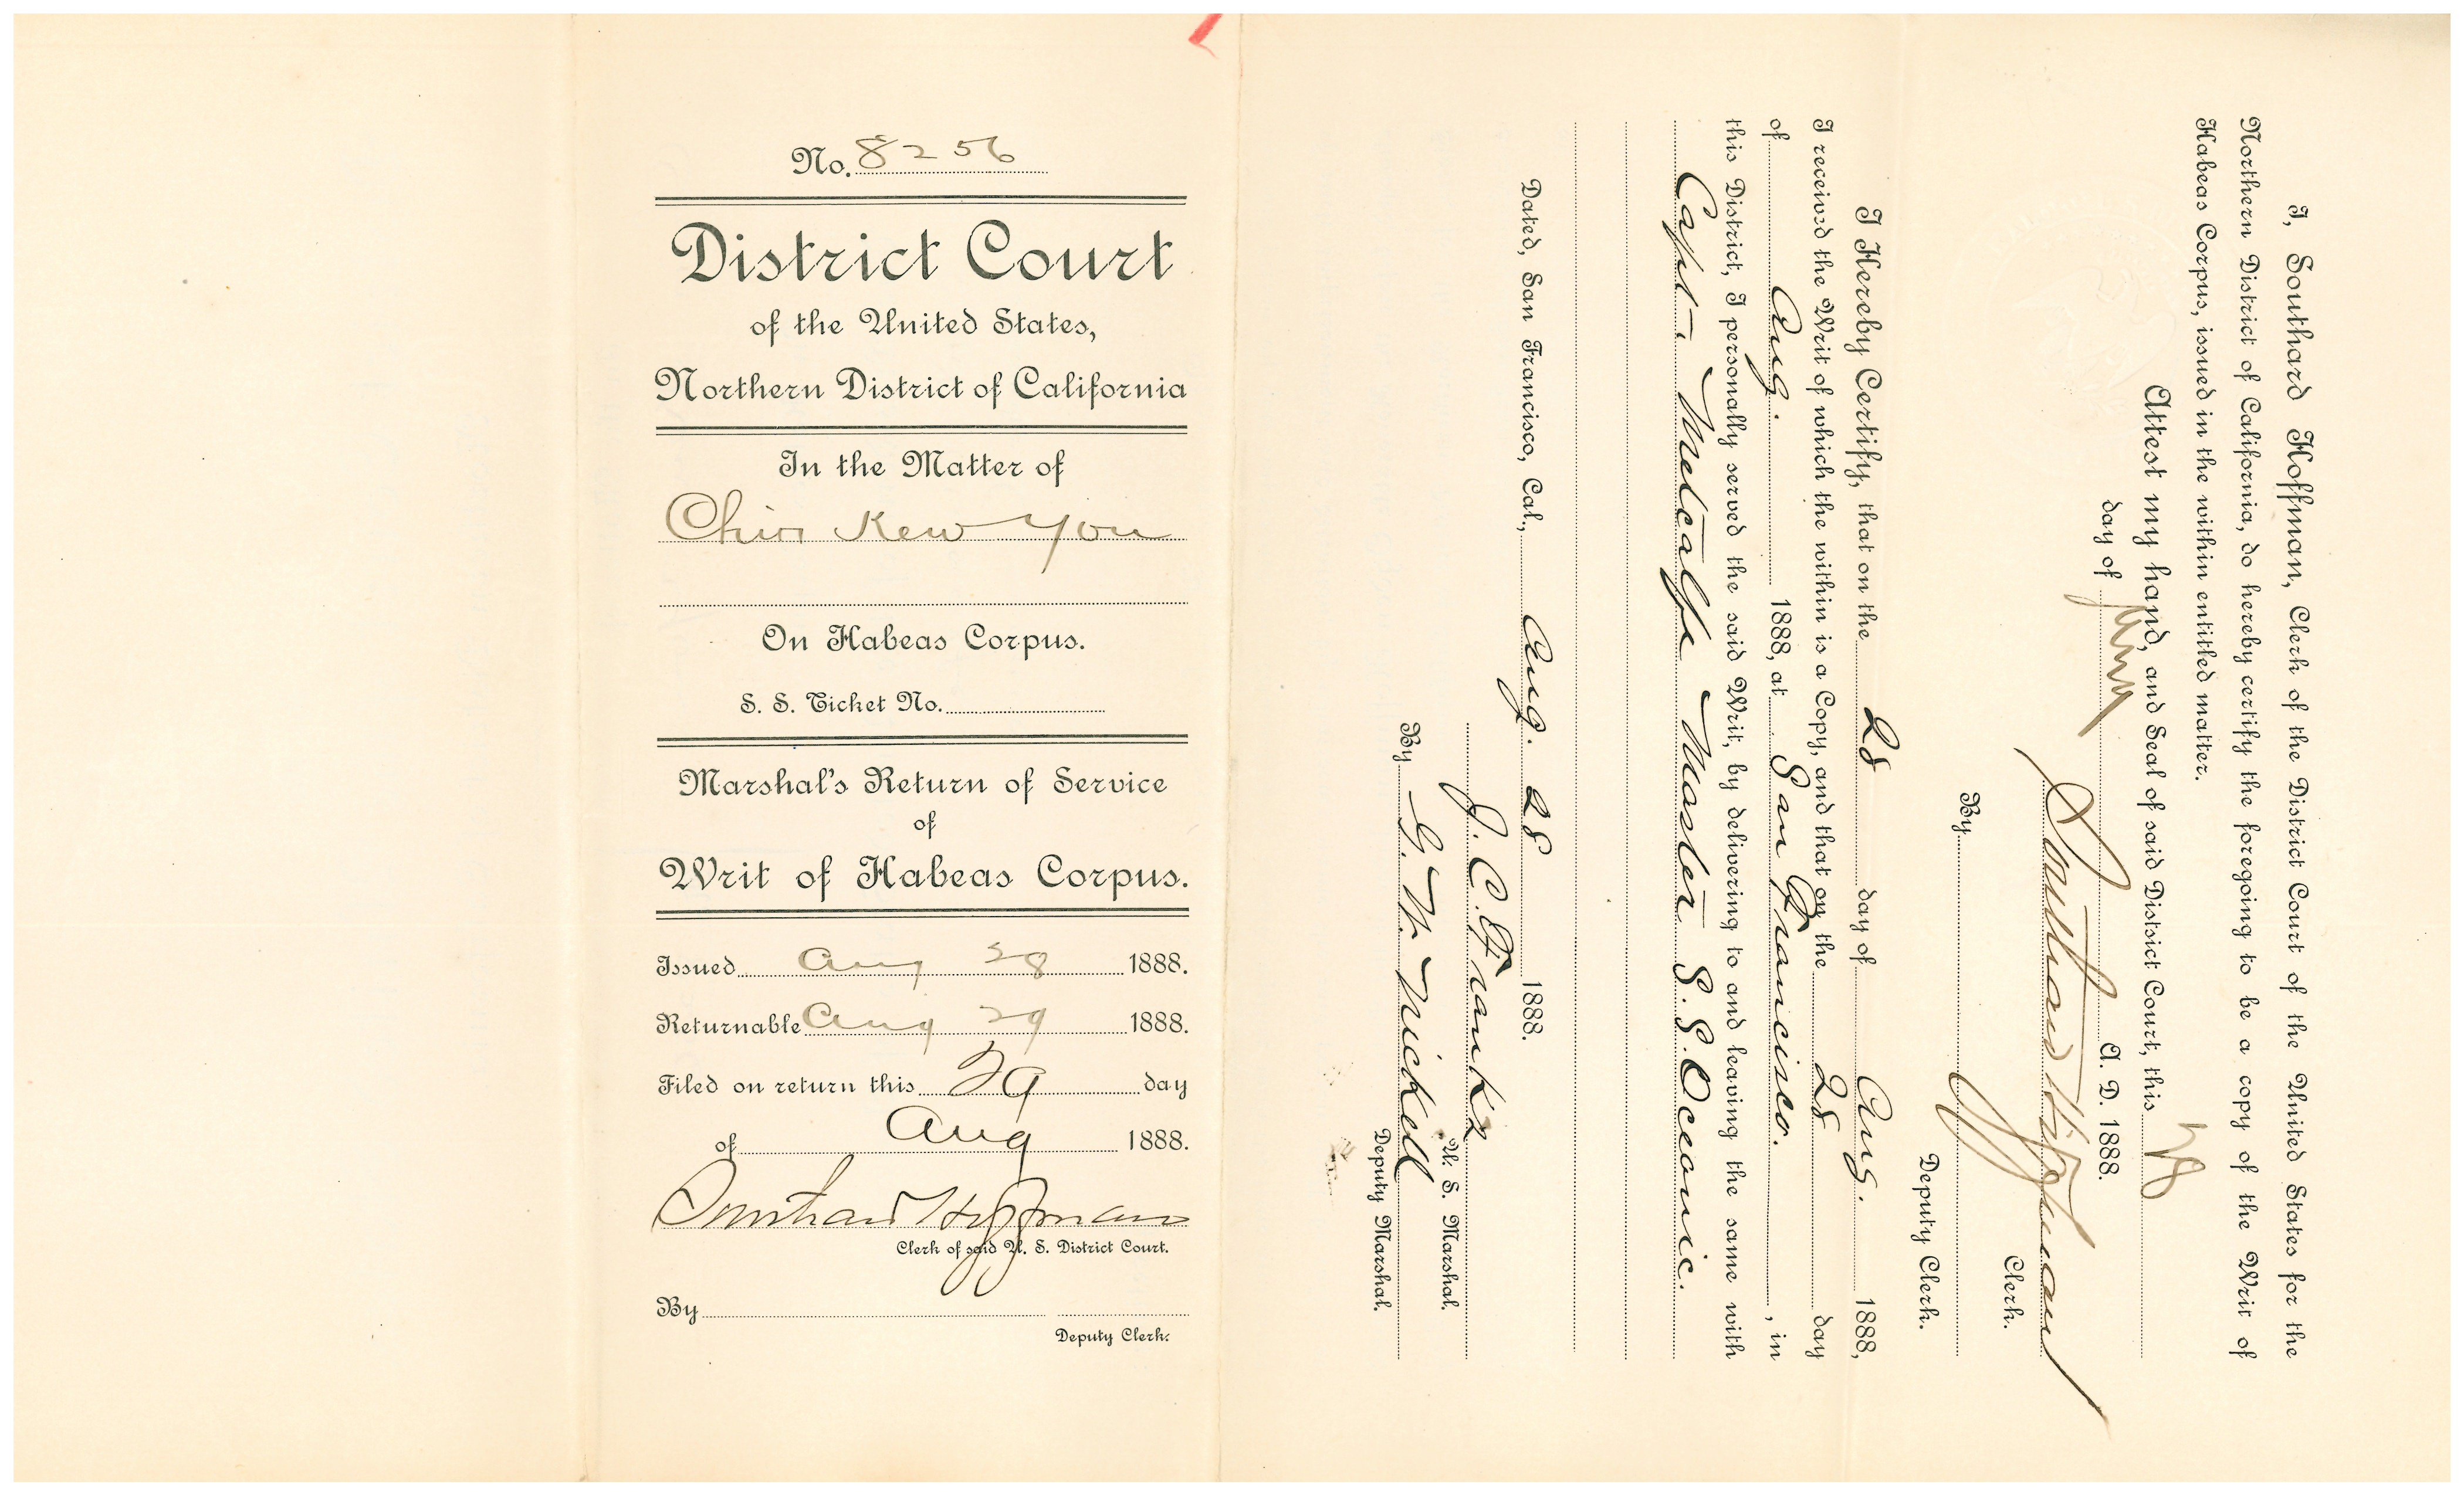 No. 8256
District Court
of the United States,
Northern District of California
In the Matter of
Chin Kew You
On Habeas Corpus.
S. S. Ticket No.
Marshal's Return of Service
of
Writ of Habeas Corpus.
Issued Aug 28 1888.
Returnable Aug 29 1888.
Filed on return this 29 day
of Aug 1888.
Southard Hoffman
Clerk of said U. S. District Court.
By
Deputy Clerk.
I, Southard Hoffman, Clerk of the District Court of the United States for the
Northern District of California, do hereby certify the foregoing to be a copy of the Writ of
Habeas Corpus, issued in the within entitled matter.
Attest my hand, and Seal of said District Court, this 28
day of Aug A. D. 1888.
Southard Hoffman
Clerk.
By
Deputy Clerk.
I Hereby Certify, that on the 28 day of Aug. 1888,
I received the Writ of which the within is a Copy, and that on the 28 day
of Aug. 1888, at San Francisco. , in
this District, I personally served the said Writ, by delivering to and leaving the same with
Capt. Metcalfe Master S. S. Oceanic.
Dated, San Francisco, Cal., Aug. 28 1888.
J. C. Franks
U. S. Marshal.
By G. W. Nickell
Deputy Marshal.